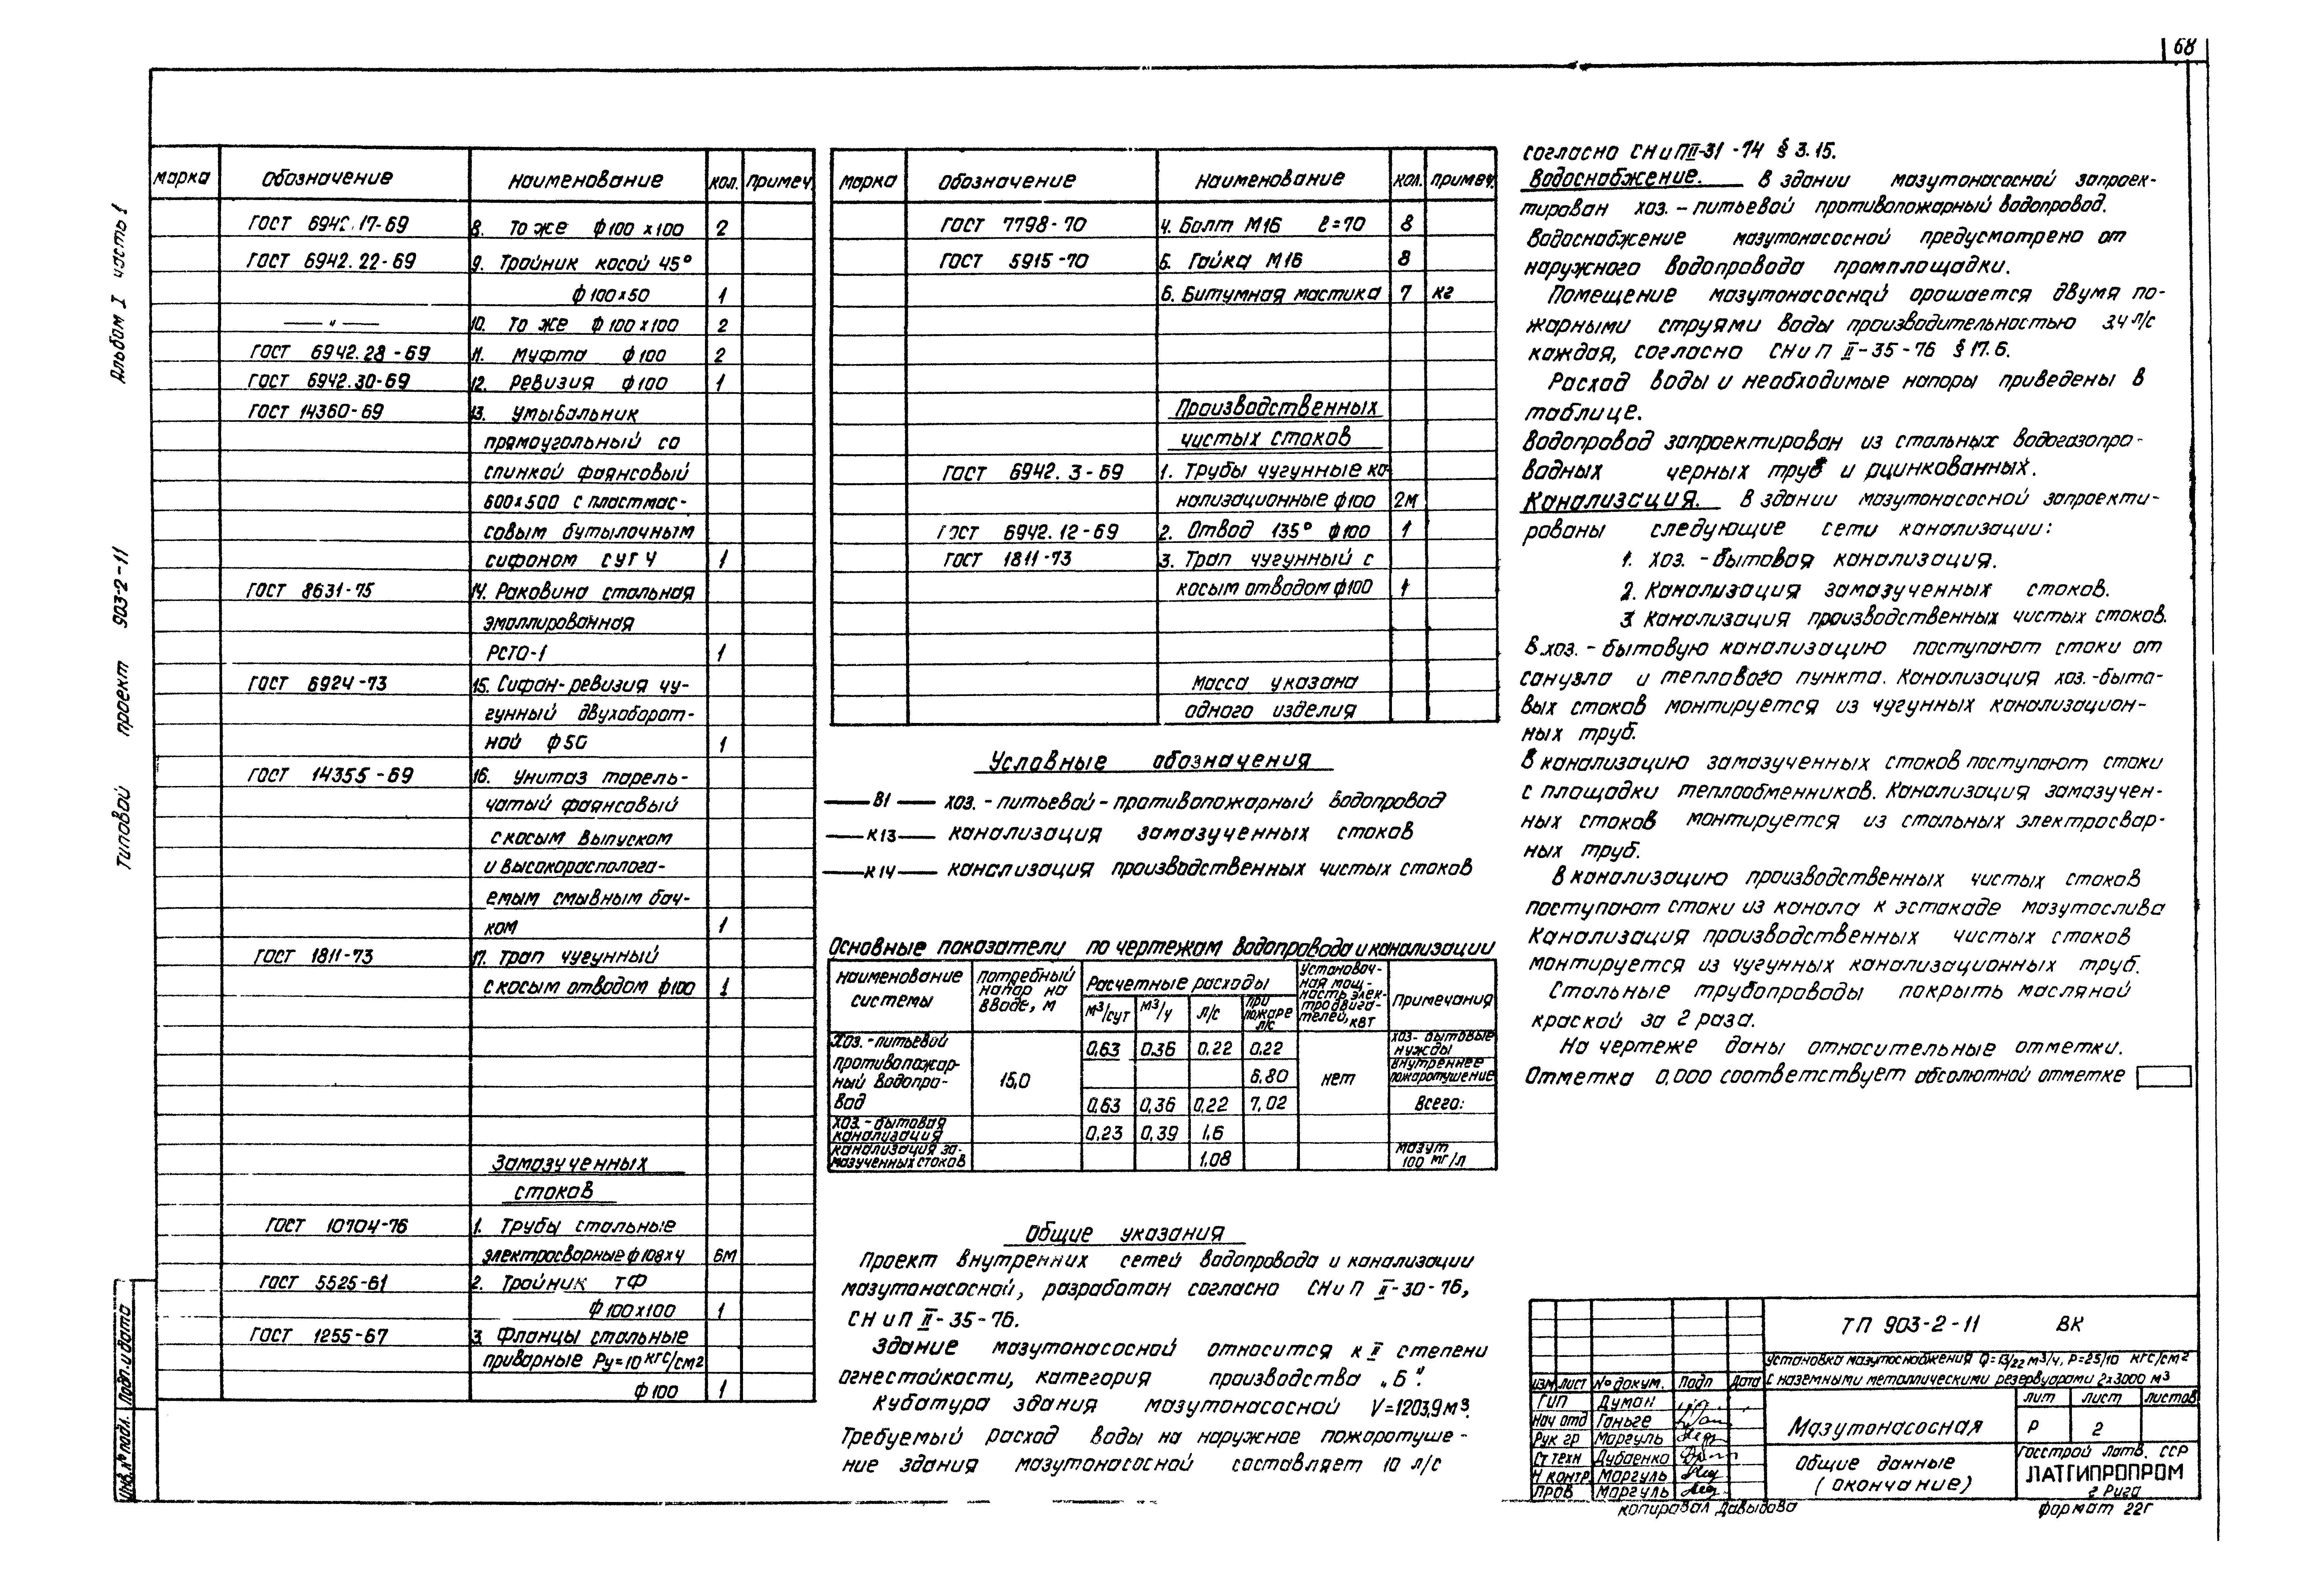 68
Альбом I часть 1
Типовой проект 903-2-11
Инв.№ подл. Подп. и дата
марка обозначение наименование кол. примеч.
ГОСТ 6942.17-69 8. То же ф100х100 2
ГОСТ 6942.22-69 9. Тройник косой 45°
ф100х50 1
— " — 10. То же ф100х100 2
ГОСТ 6942.28-69 11. Муфта ф100 2
ГОСТ 6942.30-69 12. Ревизия ф100 1
ГОСТ 14360-69 13. Умывальник
прямоугольный со
спинкой фаянсовый
600х500 с пластмас-
совым бутылочным
сифоном СУГЧ 1
ГОСТ 8631-75 14. Раковина стальная
эмалированная
РСТО-1 1
ГОСТ 6924-73 15. Сифон-ревизия чу-
гунный двухоборот-
ной ф50 1
ГОСТ 14355-69 16. Унитаз тарель-
чатый фаянсовый
с косым выпуском
и высокорасполога-
емым смывным бач-
ком 1
ГОСТ 1811-73 17. Трап чугунный
с косым отводом ф100 1
Замазученных
стоков
ГОСТ 10704-76 1. Трубы стальные
электросварные ф108х4 6м
ГОСТ 5525-61 2. Тройник ТФ
ф100х100 1
ГОСТ 1255-67 3. Фланцы стальные
приварные Ру=10 кгс/см2
ф100 1
марка обозначение наименование кол. примеч.
ГОСТ 7798-70 4. Болт М16 ℓ=70 8
ГОСТ 5915-70 5. Гайка М16 8
6. Битумная мастика 7 кг
Производственных
чистых стоков
ГОСТ 6942.3-69 1. Трубы чугунные ка-
нализационные ф100 2м
ГОСТ 6942.12-69 2. Отвод 135° ф100 1
ГОСТ 1811-73 3. Трап чугунный с
косым отводом ф100 1
Масса указана
одного изделия
Условные обозначения
— В1 — хоз.-питьевой-противопожарный водопровод
— К13 — канализация замазученных стоков
— К14 — канализация производственных чистых стоков
Основные показатели по чертежам водопровода и канализации
Наименование системы Потребный напор на вводе, м Расчетные расходы Установоч-ная мощ-ность элек-тродвига-телей, квт Примечания
м3/сут м3/ч л/с при пожаре л/с
Хоз.-питьевой противопожар-ный водопро-вод 15,0 0,63 0,36 0,22 0,22 нет хоз-бытовые нужды
6,80 внутреннее пожаротушение
0,63 0,36 0,22 7,02 Всего:
хоз.-бытовая канализация 0,23 0,39 1,6
канализация за-мазученных стоков 1,08 мазут 100 мг/л
Общие указания
Проект внутренних сетей водопровода и канализации
мазутонасосной, разработан согласно СНиП II-30-76,
СНиП II-35-76.
Здание мазутонасосной относится к II степени
огнестойкости, категория производства „Б".
Кубатура здания мазутонасосной V=1203,9м3.
Требуемый расход воды на наружное пожаротуше-
ние здания мазутонасосной составляет 10 л/с
согласно СНиП II-31-74 § 3.15.
Водоснабжение. В здании мазутонасосной запроек-
тирован хоз.-питьевой противопожарный водопровод.
Водоснабжение мазутонасосной предусмотрено от
наружного водопровода промплощадки.
Помещение мазутонасосной орошается двумя по-
жарными струями воды производительностью 3.4 л/с
каждая, согласно СНиП II-35-76 § 17.6.
Расход воды и необходимые напоры приведены в
таблице.
Водопровод запроектирован из стальных водогазопро-
водных черных труб и оцинкованных.
Канализация. В здании мазутонасосной запроекти-
рованы следующие сети канализации:
1. Хоз.-бытовая канализация.
2. Канализация замазученных стоков.
3. Канализация производственных чистых стоков.
В хоз.-бытовую канализацию поступают стоки от
санузла и теплового пункта. Канализация хоз.-быто-
вых стоков монтируется из чугунных канализацион-
ных труб.
В канализацию замазученных стоков поступают стоки
с площадки теплообменников. Канализация замазучен-
ных стоков монтируется из стальных электросвар-
ных труб.
В канализацию производственных чистых стоков
поступают стоки из канала к эстакаде мазутослива
Канализация производственных чистых стоков
монтируется из чугунных канализационных труб.
Стальные трубопроводы покрыть масляной
краской за 2 раза.
На чертеже даны относительные отметки.
Отметка 0,000 соответствует абсолютной отметке
ТП 903-2-11 ВК
Установка мазутоснабжения Q=13/22 м3/ч, Р=25/10 кгс/см2
с наземными металлическими резервуарами 2х3000 м3
Изм Лист № докум. Подп Дата
ГИП Думан
Нач отд Ганьге
Рук гр Маргуль
Ст техн Дубаенко
Н контр Маргуль
Пров Маргуль
Мазутонасосная
лит лист листов
Р 2
Общие данные
(окончание)
Госстрой Латв. ССР
ЛАТГИПРОПРОМ
г Рига
копировал Давыдова формат 22г